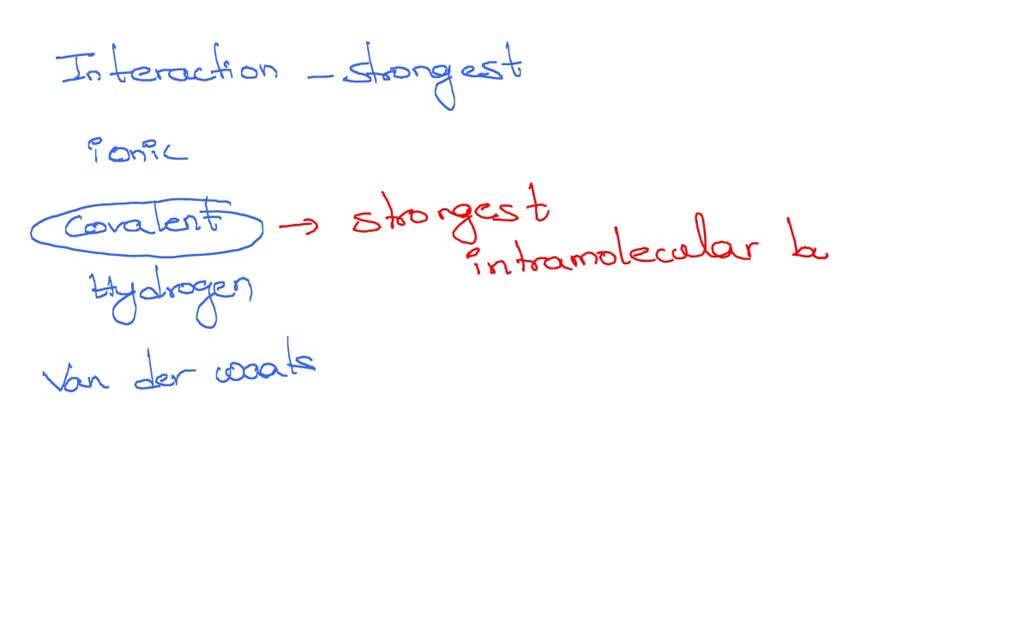 Interaction - strongest
ionic
covalent → strongest
intramolecular b
Hydrogen
Van der waals